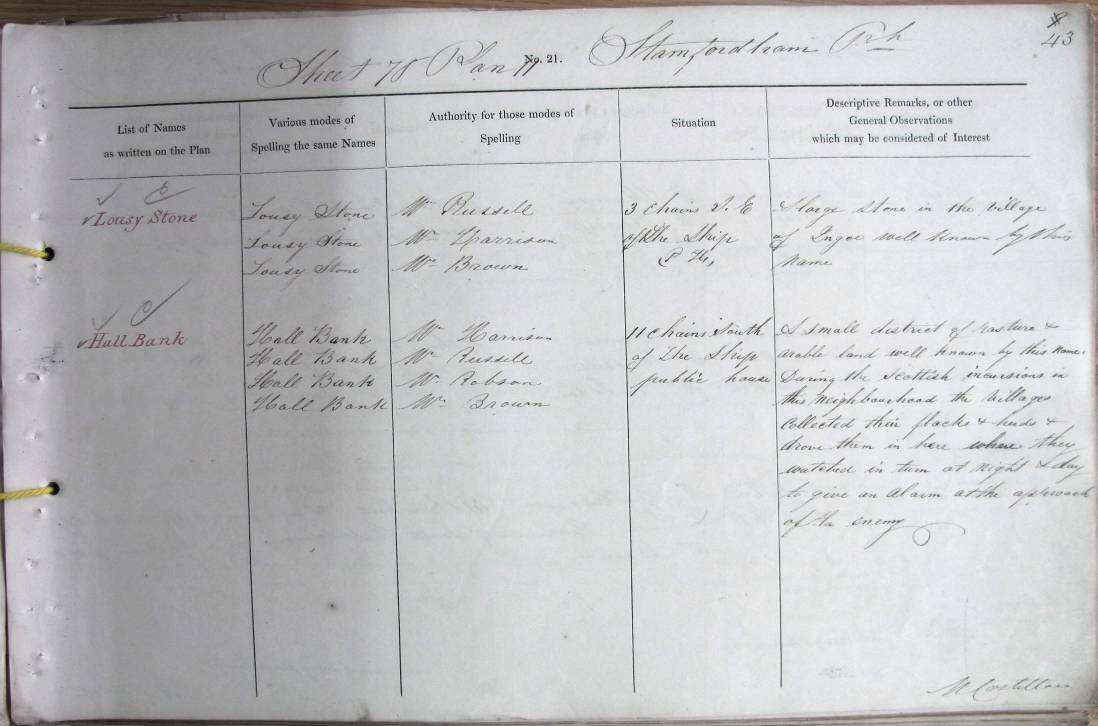 43
Sheet 78 Plan 11 No. 21. Stamfordham Psh
List of Names
as written on the Plan
Various modes of
Spelling the same Names
Authority for those modes of
Spelling
Situation
Descriptive Remarks, or other
General Observations
which may be considered of Interest
Lousy Stone
Lousy Stone
Lousy Stone
Lousy Stone
Mr Russell
Mr Harrison
Mr Brown
3 Chains S. E
of The Ship
P. H.,
A large stone in the village
of Ingoe well known by this
name
Hall Bank
Hall Bank
Hall Bank
Hall Bank
Hall Bank
Mr Harrison
Mr Russell
Mr Robson
Mr Brown
11 chains South
of The Ship
public house
A small district of pasture &
arable land well known by this name.
During the Scottish incursions in
this Neighbourhood the Villages
collected their flocks & herds &
drove them in here where they
watched in turn at night & day
to give an alarm at the approach
of the enemy